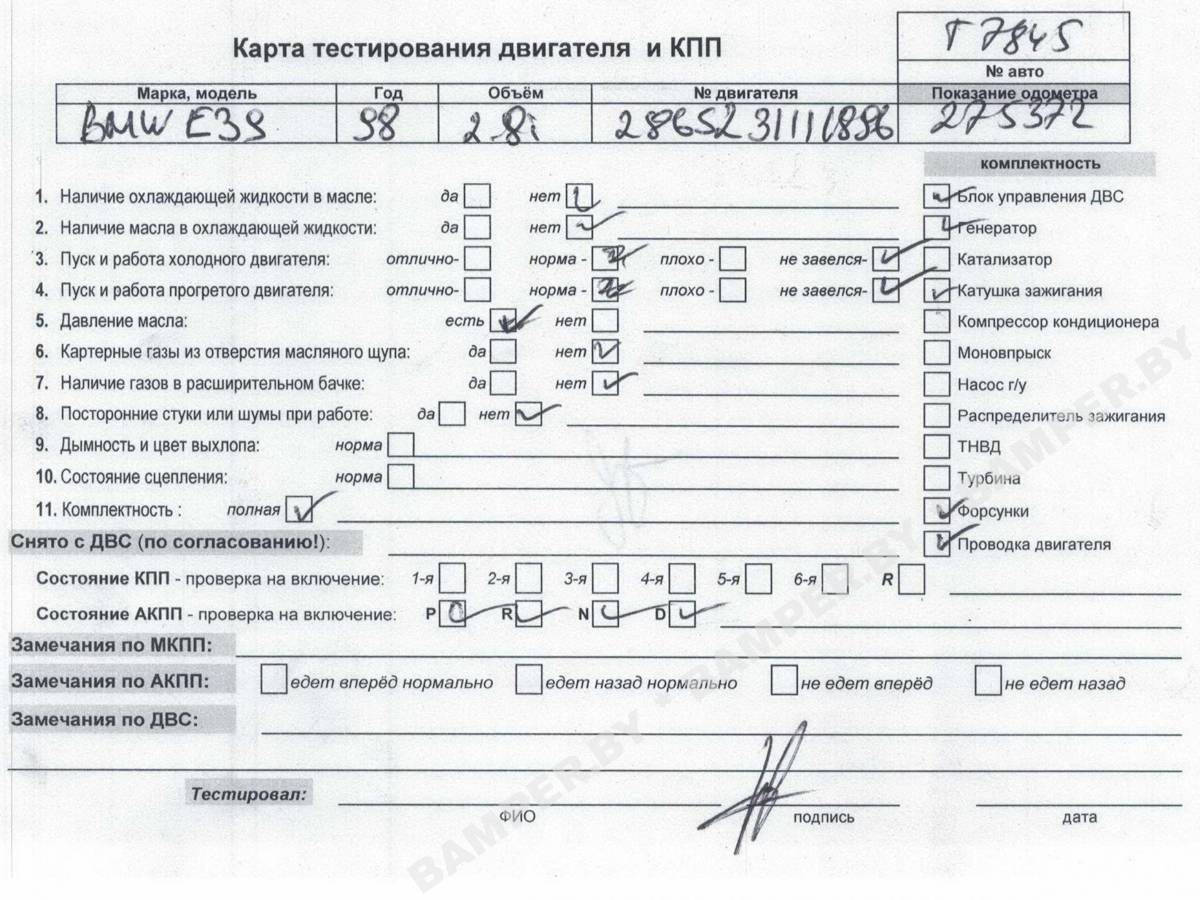 Т 7845
Карта тестирования двигателя и КПП
№ авто
Марка, модель Год Объём № двигателя Показание одометра
BMW E39 98 2.8i 286S2 31111896 275372
комплектность
1. Наличие охлаждающей жидкости в масле: да нет Блок управления ДВС
2. Наличие масла в охлаждающей жидкости: да нет Генератор
3. Пуск и работа холодного двигателя: отлично- норма - плохо - не завелся- Катализатор
4. Пуск и работа прогретого двигателя: отлично- норма - плохо - не завелся- Катушка зажигания
5. Давление масла: есть нет Компрессор кондиционера
6. Картерные газы из отверстия масляного щупа: да нет Моновпрыск
7. Наличие газов в расширительном бачке: да нет Насос г/у
8. Посторонние стуки или шумы при работе: да нет Распределитель зажигания
9. Дымность и цвет выхлопа: норма ТНВД
10. Состояние сцепления: норма Турбина
11. Комплектность : полная Форсунки
Снято с ДВС (по согласованию!): Проводка двигателя
Состояние КПП - проверка на включение: 1-я 2-я 3-я 4-я 5-я 6-я R
Состояние АКПП - проверка на включение: P R N D
Замечания по МКПП:
Замечания по АКПП: едет вперёд нормально едет назад нормально не едет вперёд не едет назад
Замечания по ДВС:
Тестировал:
ФИО подпись дата
BAMPER.BY - BAMPER.BY - BAMPER.BY